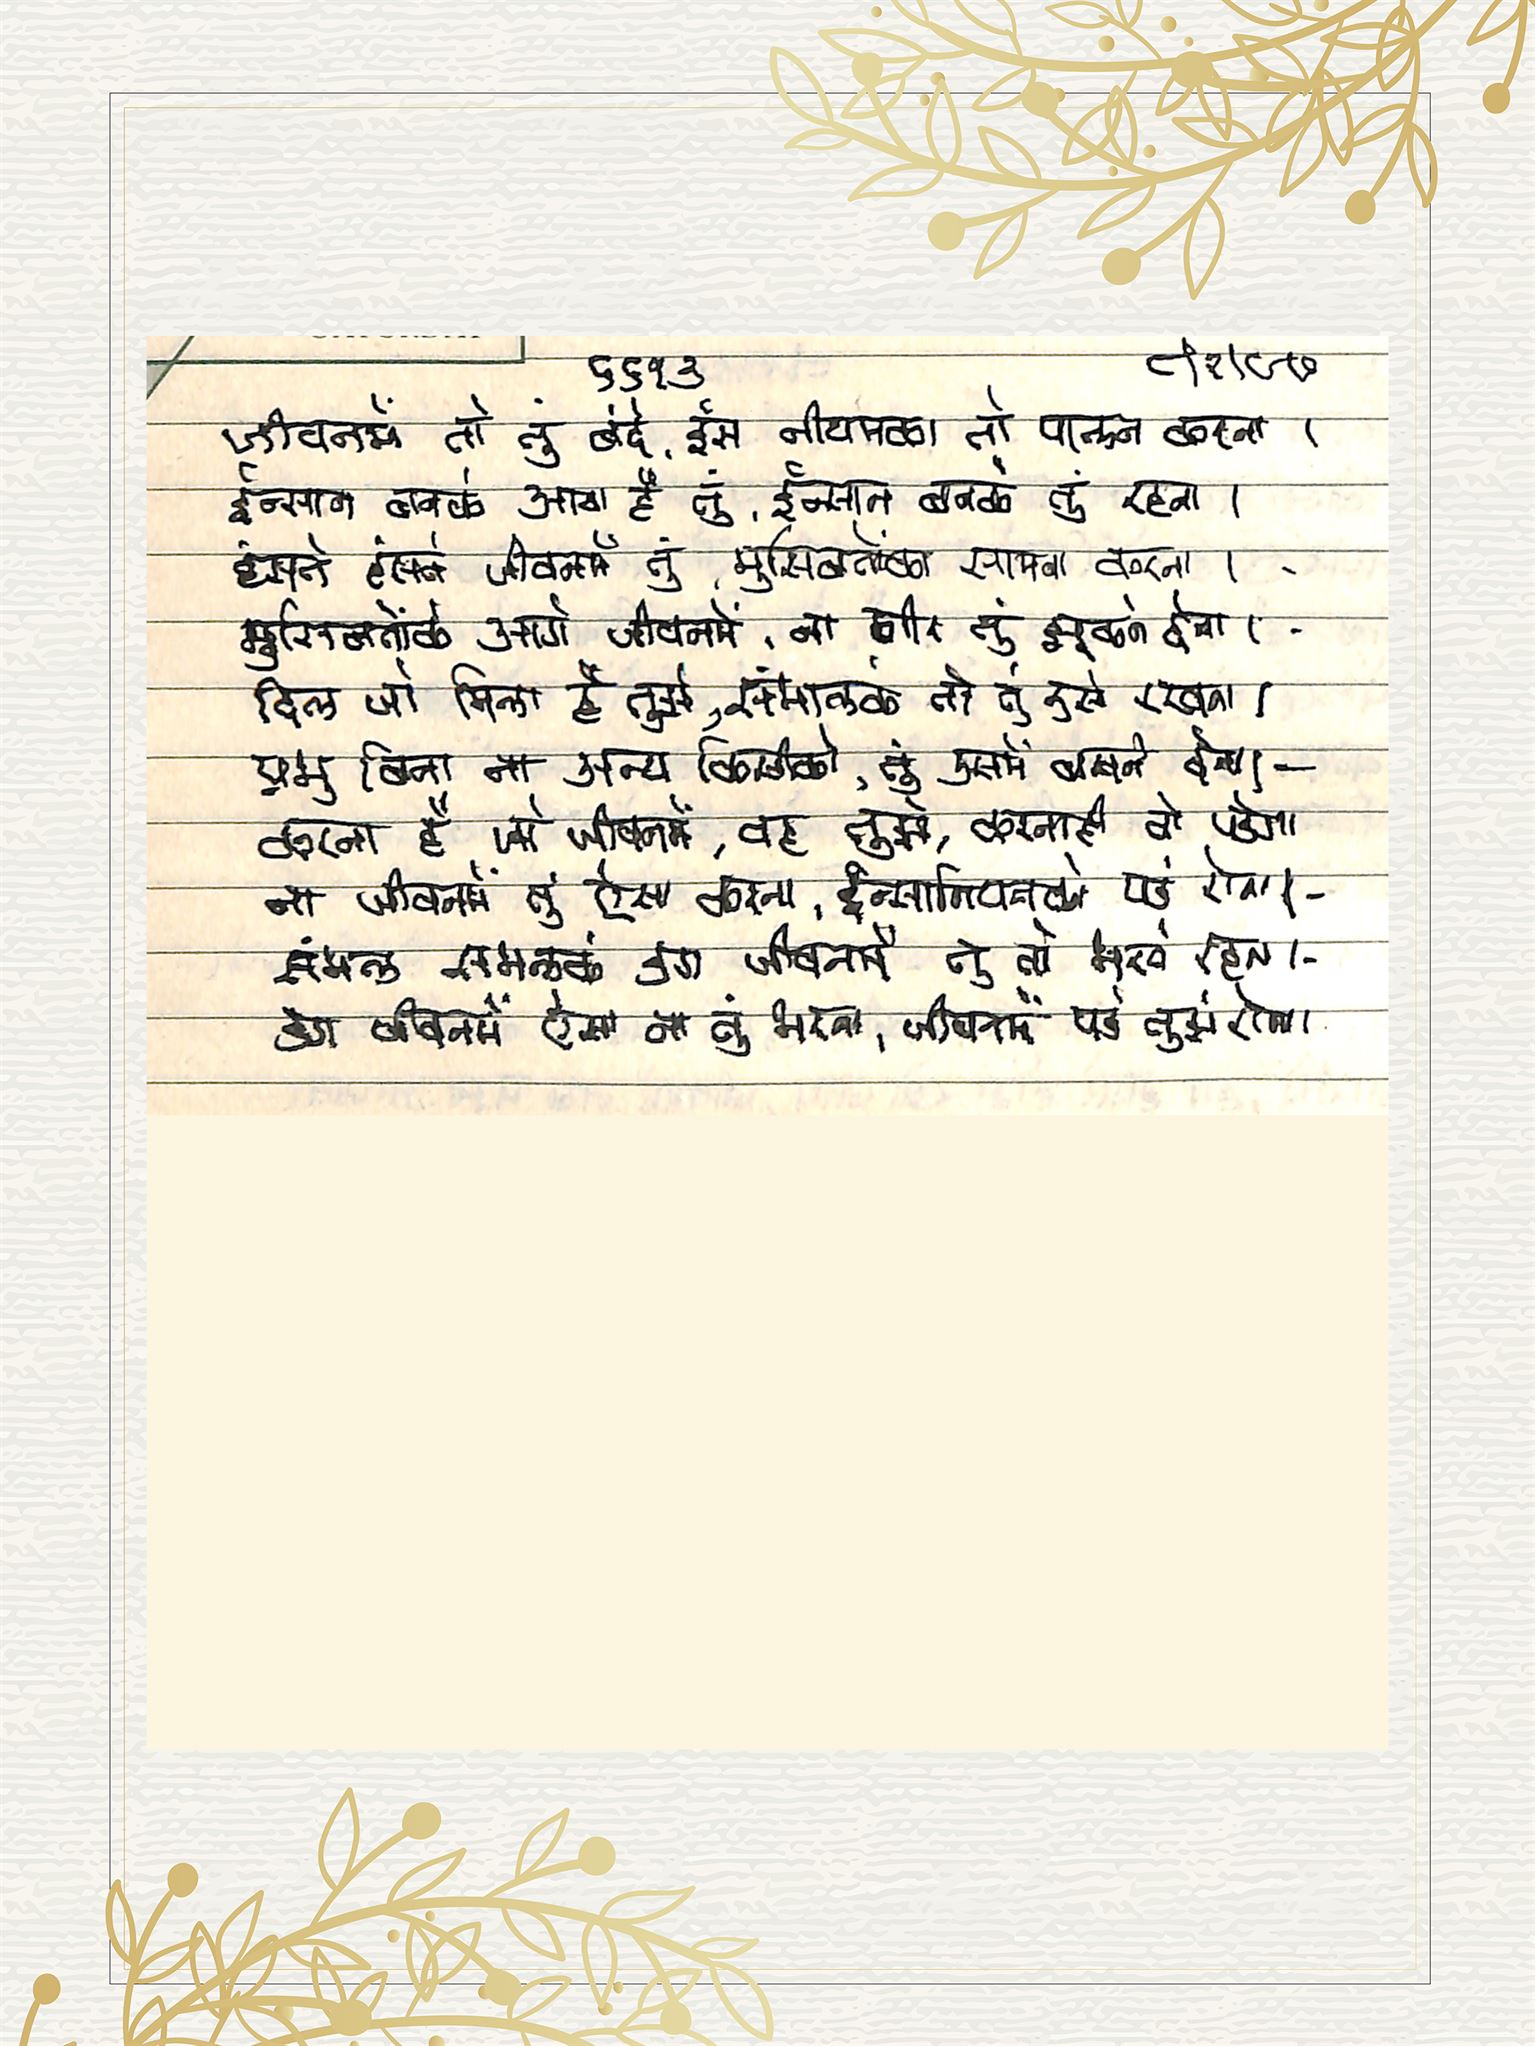 ६६१३
जीवनमें तो तुं बंदे, ईस नीयमका तो पालन करना ।
ईन्सान बनके आया है तुं, ईन्सान बनके तुं रहना ।
हंसते हंसते जीवनमें तुं, मुसिबतोंका सामना करना । -
मुसिबतोंके आगे जीवनमें, ना शीर तुं झुकने देना । -
दिल जो मिला है तुझे, संभालके तो तुं उसे रखना ।
प्रभु बिना ना अन्य किसीको, तुं उसमें बसने देना । -
करना है जो जीवनमें, वह तुझे, करनाही तो पडेगा
ना जीवनमें तुं ऐसा करना, ईन्सानियतको पडे रोना । -
संभल संभलके डग जीवनमें तु तो भरते रहना । -
डग जीवनमें ऐसा ना तुं भरना, जीवनमें पडे तुझे रोना ।